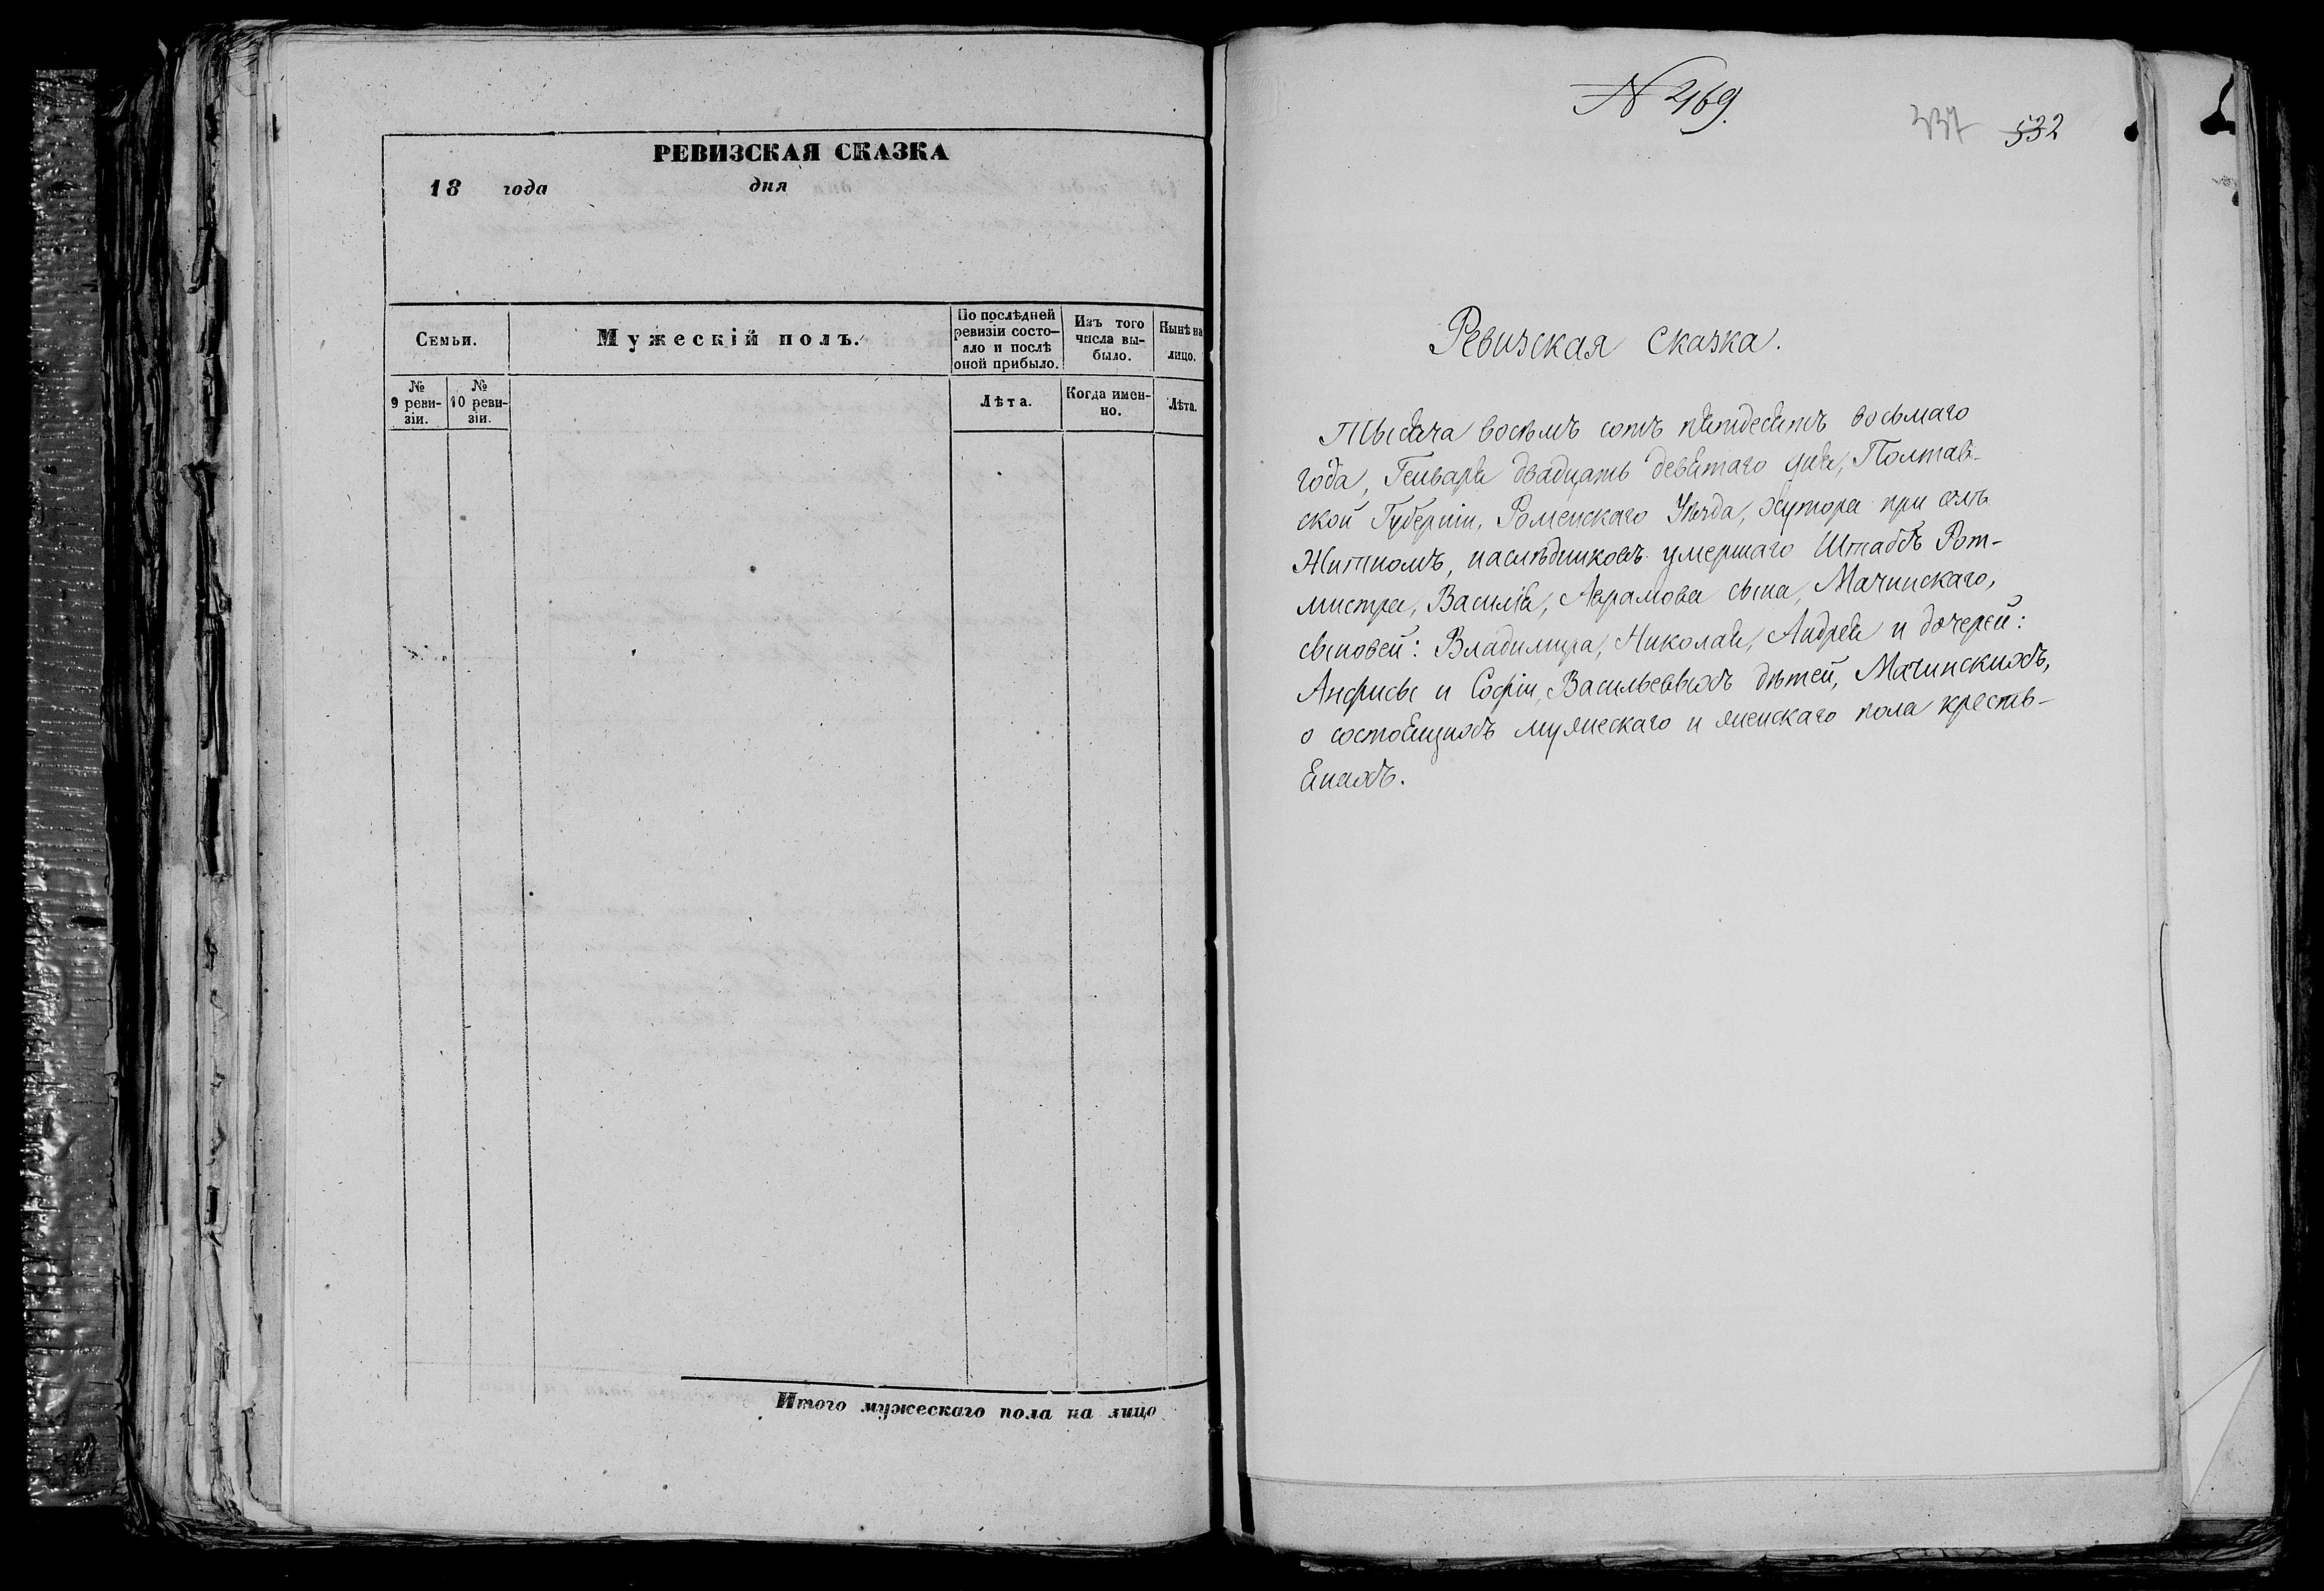 РЕВИЗСКАЯ СКАЗКА
18 года дня
Семьи.
Мужескій полъ.
По послѣдней
ревизіи состо-
яло и послѣ
оной прибыло.
Изъ того
числа вы-
было.
Нынѣ на
лицо.
№
9 реви-
зіи.
№
10 реви-
зіи.
Лѣта.
Когда имен-
но.
Лѣта.
Итого мужескаго пола на лицо
N 469.
337 532
Ревизская сказка.
Тысяча восемь сотъ пятдесятъ восьмаго
года, Генваря двадцать девятаго дня, Полтав-
ской Губерніи, Роменскаго Уѣзда, хутора при селѣ
наслѣдниковъ умершаго Штабсъ Рот-
мистра, Василія, Аврамова сына, Мачинскаго,
сыновей: Владимира, Николая, Андрея и дочерей:
Анфисы и Софіи, Васильевыхъ дѣтей, Мачинскихъ,
о состоящихъ мужескаго и женскаго пола кресть-
янахъ.